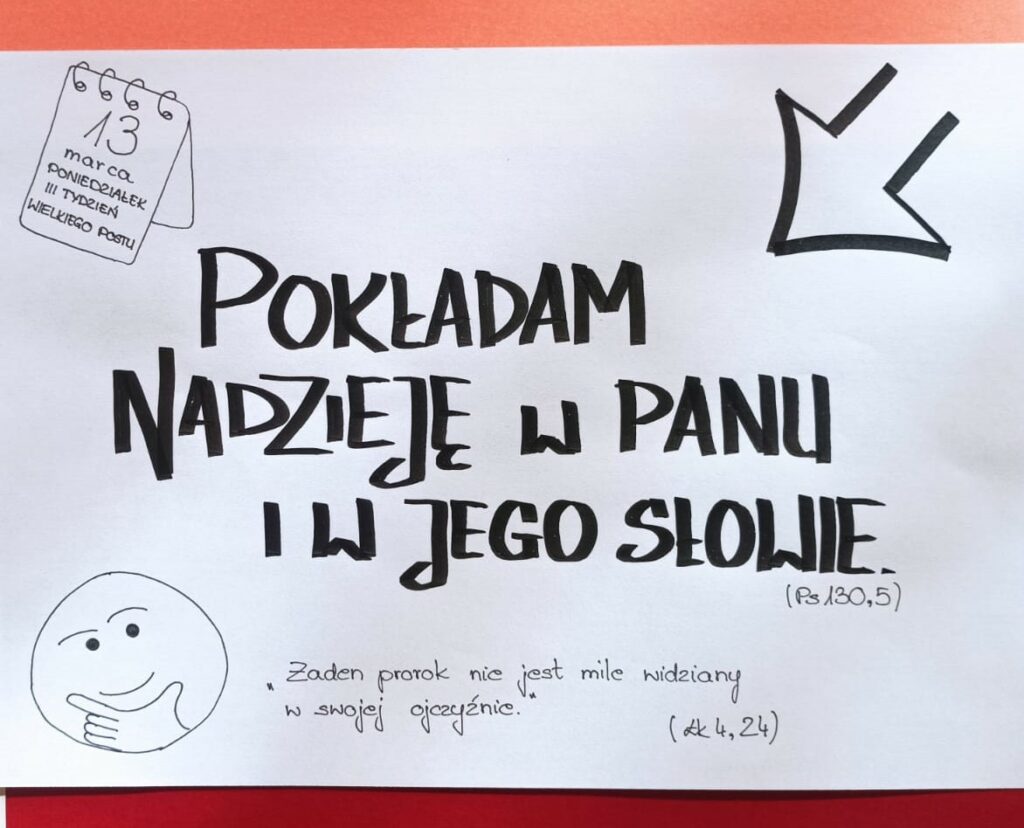 13
marca
PONIEDZIAŁEK
III TYDZIEŃ
WIELKIEGO POSTU
POKŁADAM
NADZIEJĘ W PANU
I W JEGO SŁOWIE.
(Ps 130,5)
„Żaden prorok nie jest mile widziany
w swojej ojczyźnie.”
(Łk 4,24)